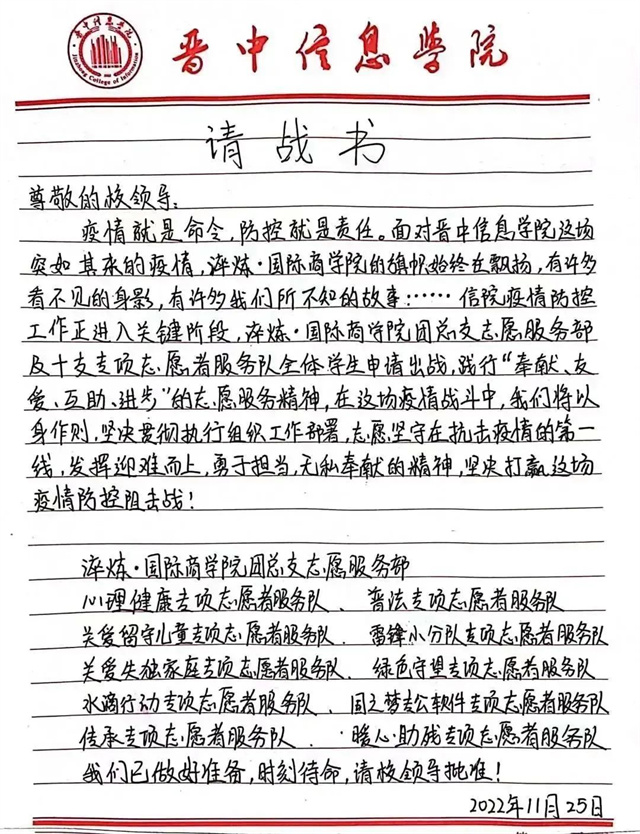 晋中信息学院
Jinzhong College of Information
晋中信息学院
请战书
尊敬的校领导：
疫情就是命令，防控就是责任。面对晋中信息学院这场
突如其来的疫情，淬炼·国际商学院的旗帜始终在飘扬，有许多
看不见的身影，有许多我们所不知的故事：……信院疫情防控
工作正进入关键阶段，淬炼·国际商学院团总支志愿服务部
及十支专项志愿者服务队全体学生申请出战，践行“奉献、友
爱、互助、进步”的志愿服务精神，在这场疫情战斗中，我们将以
身作则，坚决贯彻执行组织工作部署，志愿坚守在抗击疫情的第一
线，发挥迎难而上，勇于担当，无私奉献的精神，坚决打赢这场
疫情防控阻击战！
淬炼·国际商学院团总支志愿服务部
心理健康专项志愿者服务队、普法专项志愿者服务队
关爱留守儿童专项志愿者服务队、雷锋小分队专项志愿者服务队
关爱失独家庭专项志愿者服务队、绿色守望专项志愿者服务队
水滴行动专项志愿者服务队、国之梦办公软件专项志愿者服务队
传承专项志愿者服务队、暖心助残专项志愿者服务队
我们已做好准备，时刻待命，请校领导批准！
2022年11月25日